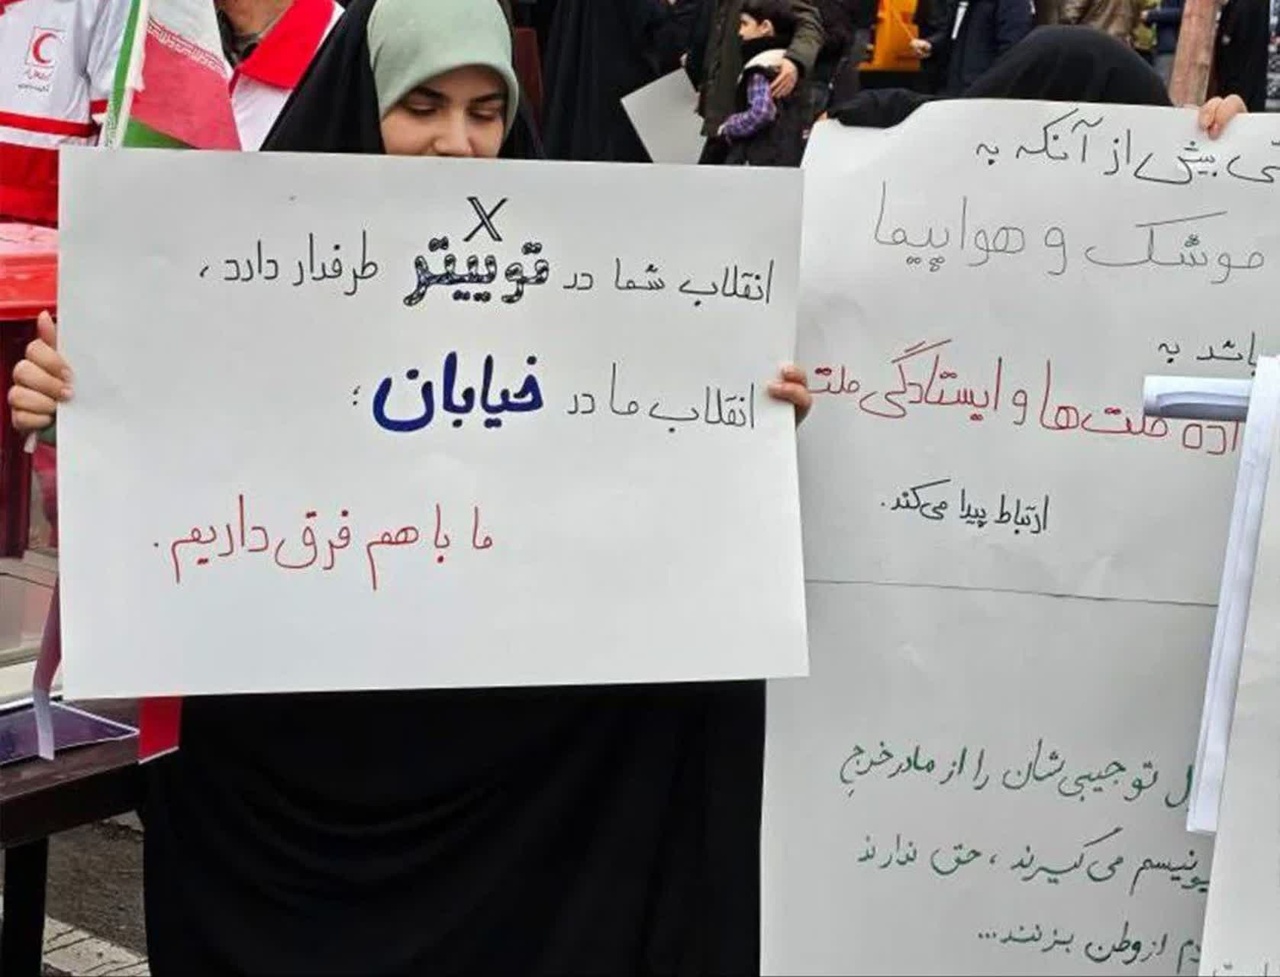 X
انقلاب شما در توییتر طرفدار دارد،
انقلاب ما در خیابان؛
ما با هم فرق داریم.
بیش از آنکه به
موشک و هواپیما
باشد به
ملت‌ها و ایستادگی ملت
ارتباط پیدا می‌کند.
تو جیبی‌شان را از مادر خرج
می‌گیرند، حق ندارند
از وطن بزنند...